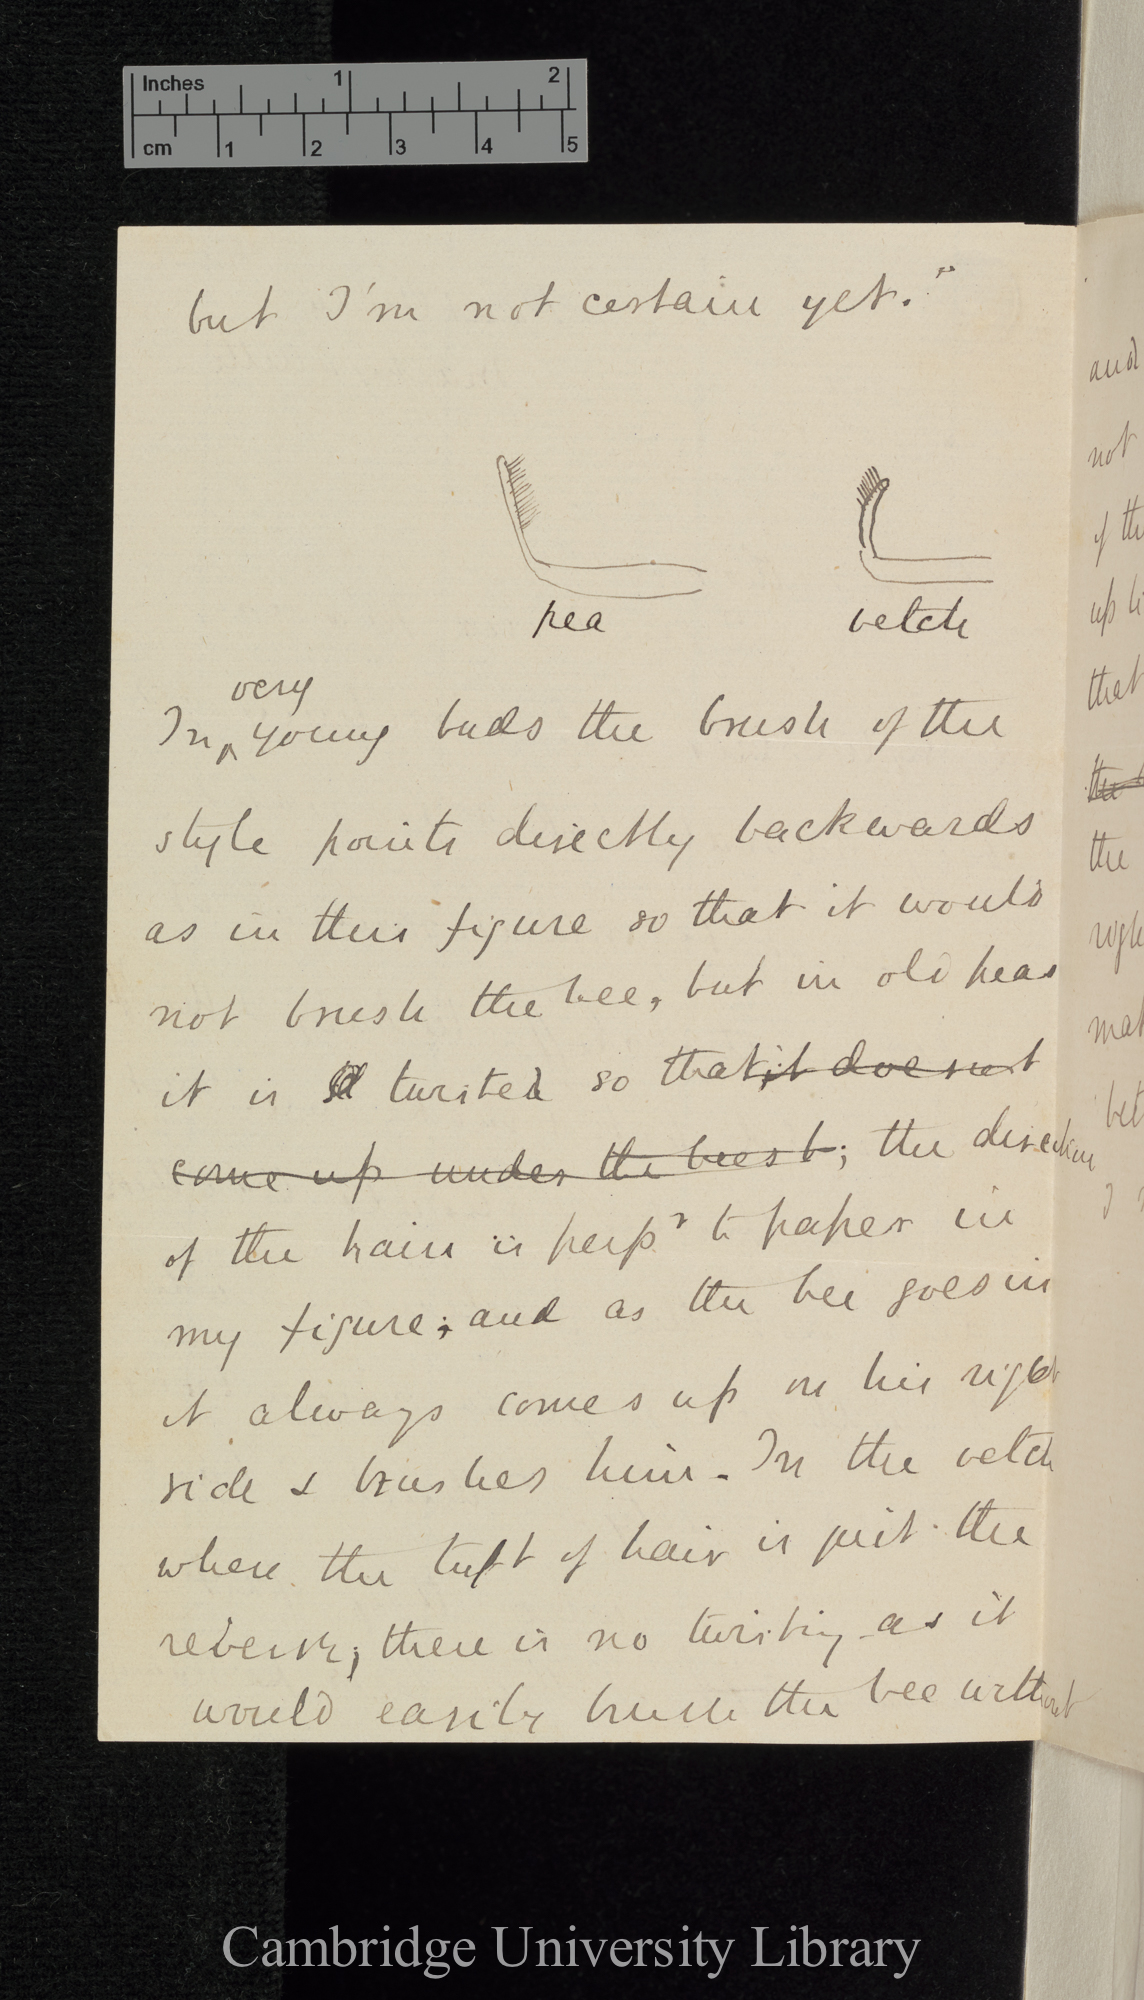 Inches 1 2
cm 1 2 3 4 5
but I'm not certain yet."
pea vetch
very
In ^ young buds the brush of the
style points directly backwards
as in this figure so that it would
not brush the bee, but in old peas
it is twisted so that it does not
come up under the bees b; the direction
of the hairs is perpr to paper in
my figure; and as the bee goes in
it always comes up on his right
side & brushes him. In the vetch
where the tuft of hair is just the
reverse, there is no twisting as it
would easily brush the bee without
and
not
of th
up li
that
the
the
righ
mat
bet
I
Cambridge University Library